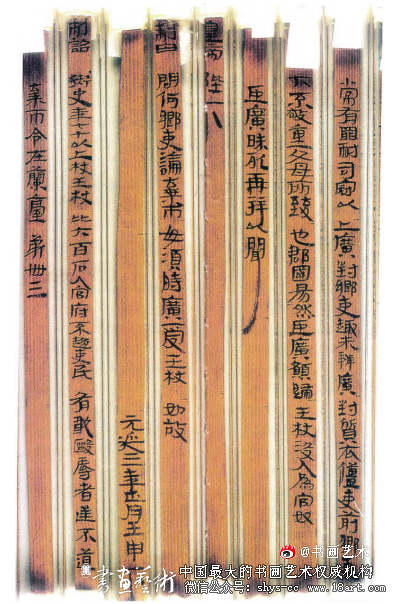 未常有罪耐司寇以上廣對鄉吏趣未辨廣對質衣僵吏前鄉
不敬重父母所致也郡國易然臣廣願歸王杖沒入為官奴
臣廣昧死再拜以聞
皇帝陛下
制曰問何鄉吏論棄市毋須時廣受王杖如故
元延三年正月壬申
制詔御史年七十以上杖王杖比六百石入官府不趨吏民有敢毆辱者逆不道
棄市令在蘭臺第卌三
@书画艺术
書畫藝術
中国最大的书画艺术权威机构
微信公众号:shys-cc www.18art.com